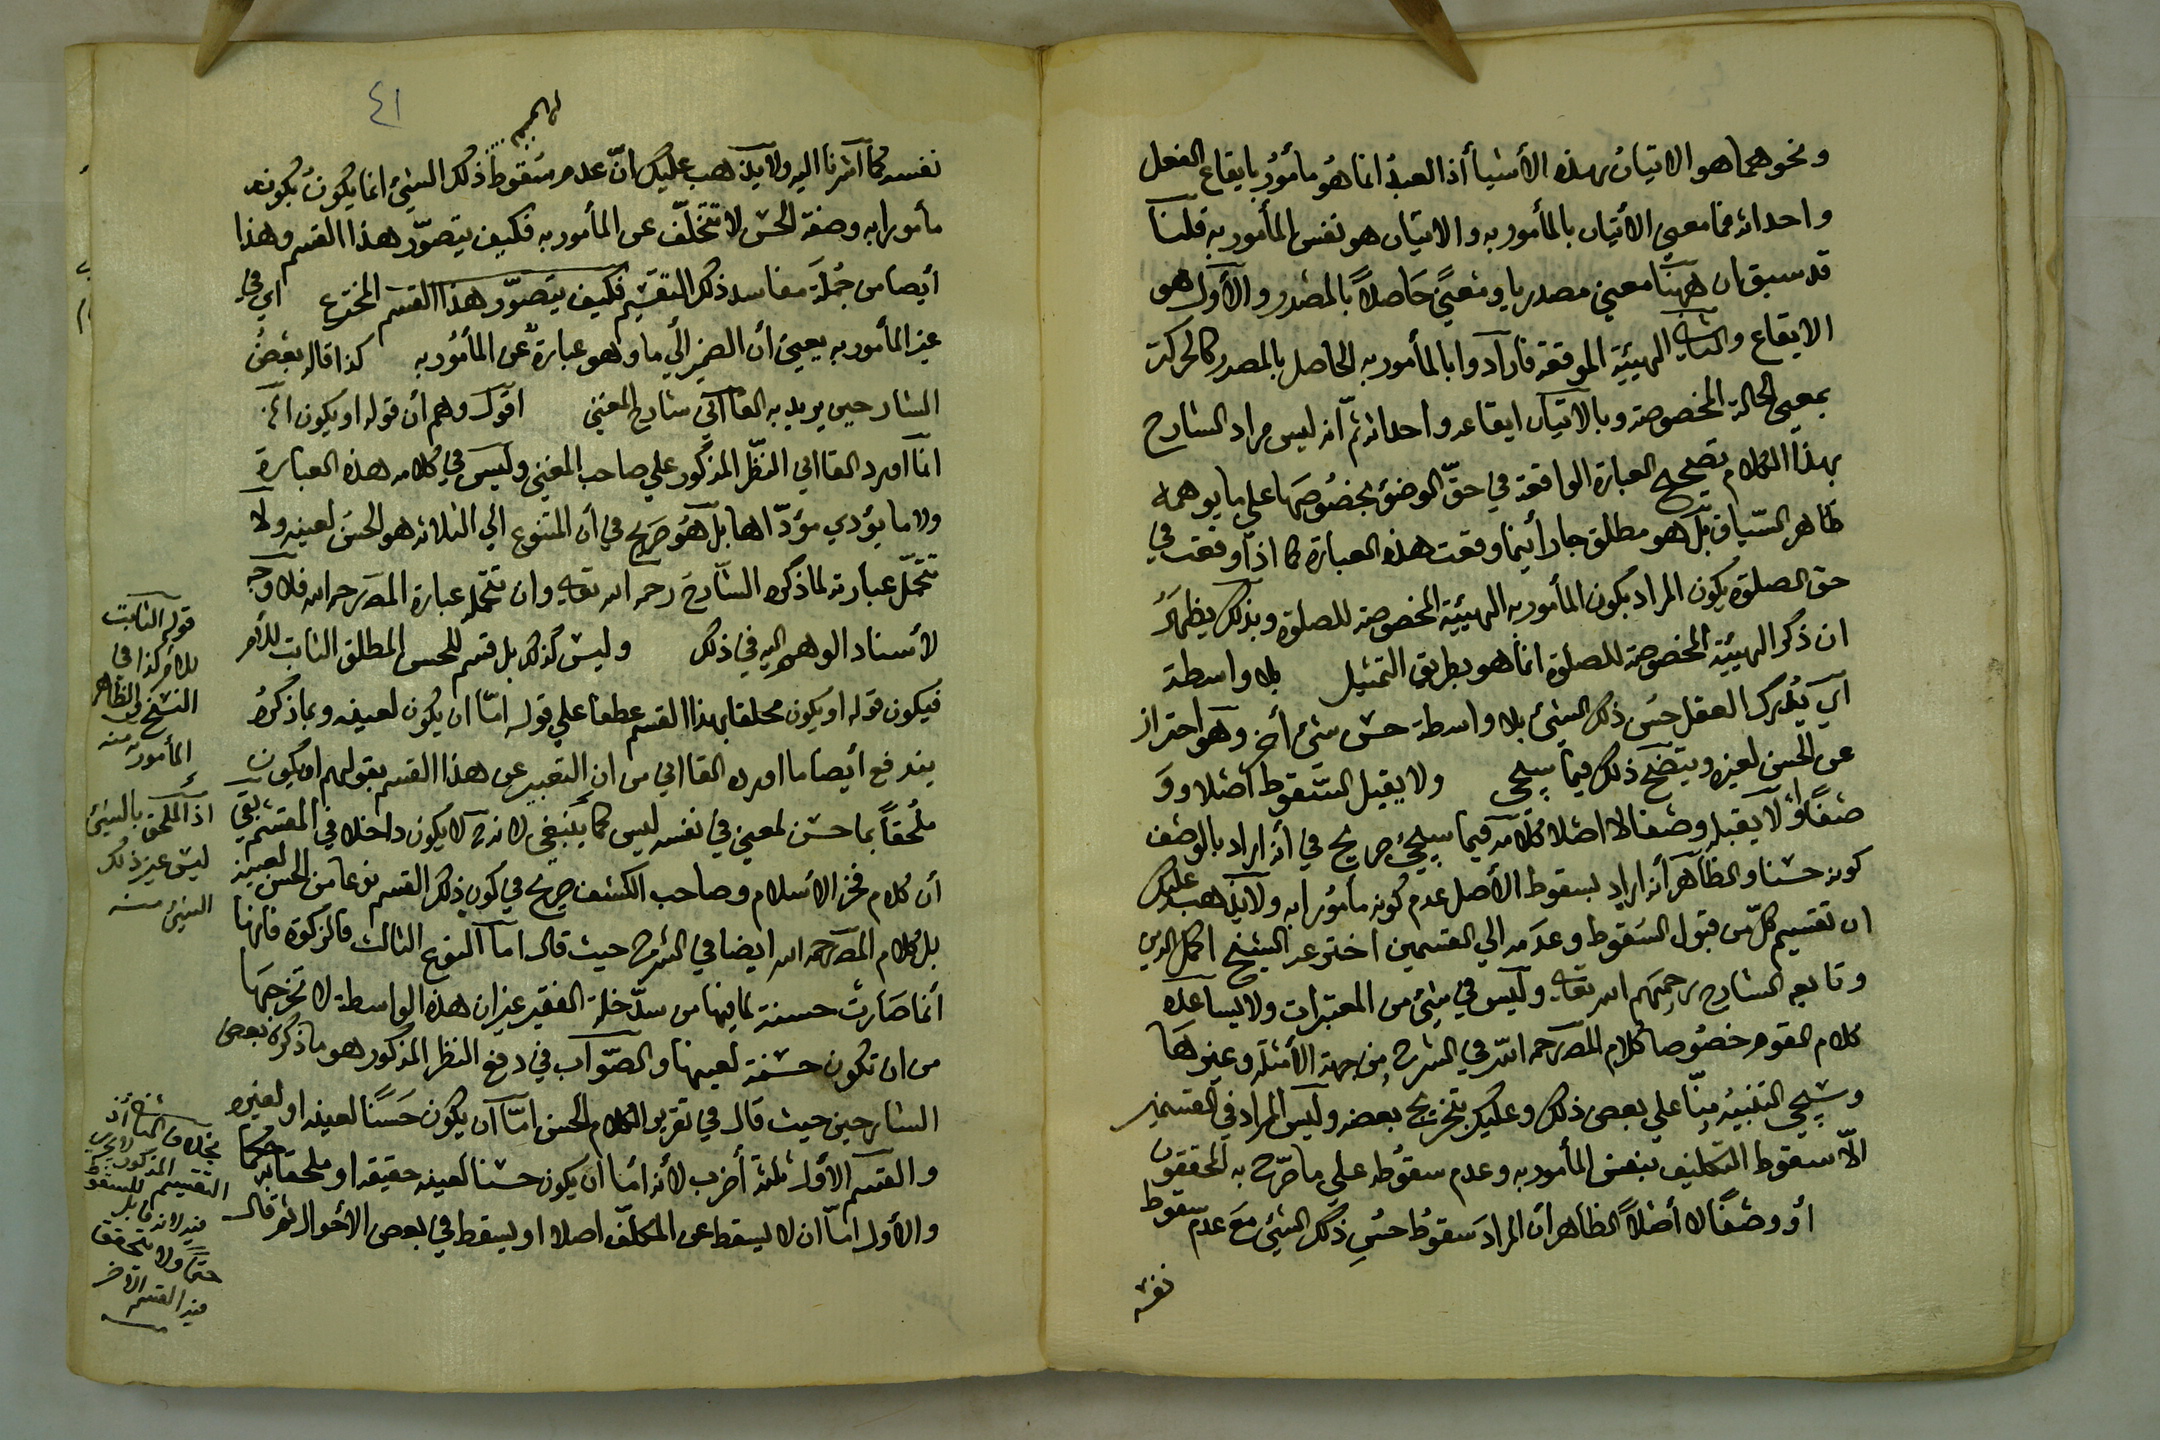 ونحوهما هو الاتيان بهذه الأشيا أذ العبد انما هو مأمور بايقاع الفعل
واحداثه فما معني الأتيان بالمأمور به والاتيان هو نفس المأمور به قلنا
قد سبق ان ههنا معني مصدريا ومعنيً حاصلاً بالمصدر والأول هو
الايقاع والثاني الهيئة الموقعة فارادوا بالمأمور به الحاصل بالمصدر كالحركة
بمعني الحالة المخصوصة وبالاتيان ايقاعه واحداثه ثم انه ليس مراد الشارح
بهذا الكلام تصحيح العبارة الواقعة في حق الوضوء بخصوصها علي ما يوهمه
ظاهر السياق بل هو مطلق جار أينما وقعت هذه العبارة كما اذا وقعت في
حق الصلوة يكون المراد بكون المأمور به الهيئية المخصوصة للصلوة وبذلك يظهر
ان ذكر الهيئية المخصوصة للصلوة انما هو بطريق التمثيل بلا واسطة
اي يدرك العقل حسن ذلك الشيئ بلا واسطة حسن شيئ أخر وهو احتراز
عن الحسن لغيره ويتضح ذلك فيما سيجي ولا يقبل السقوط اصلا وو
صفًا اولا يقبله وصفا لا اصلا كلامه فيما سيجيئ صريح في أنه اراد بالوصف
كونه حسنا والظاهر أنه اراد بسقوط الأصل عدم كونه مأمورا به ولا يذهب عليك
ان تقسيم كل من قبول السقوط وعدمه الي القسمين اخترعه الشيخ اكمل الدين
وتابعه الشارح رحمهم الله تعالي وليس في شيئ من المعتبرات ولا يساعده
كلام القوم خصوصا كلام المصـ رحمه الله في الشرح من جهة الأمثلة وغيرها
وسيجي التنبيه منا علي بعض ذلك وعليك بتخريج بعضه وليس المراد في القسمين
الا سقوط التكليف بنفس المأمور به وعدم سقوطه علي ما صرح به المحققون
أو وصفًا لا أصلاً الظاهر أن المراد سقوط حسن ذلك الشيئ مع عدم سقوط
نفسه
٤١
نفسه كما اشرنا اليه ولا يذهب عليك انّ عدم سقوط ذلك الشيئ انما يكون بكونه
مأمورا به وصفة الحسن لا تتخلف عن المأمور به فكيف يتصوّر هذا القسم وهذا
أيضا من جملة مفاسد ذلك التقسيم فكيف يتصوّر هذا القسم المخترع اي في
غير المأمور به يعني أن الضمير الي ما وهو عبارة عن المأمور به كذا قال بعض
الشارحين يريد به القاآني شارح المغني اقول وهم أن قوله او يكون الخ
انما اورد القااني النظر المذكور علي صاحب المغني وليس في كلامه هذه العبارة
ولا ما يؤدي مؤدّاها بل هو صريح في أن المتنوع الي الثلاثه هو الحسن لعينه ولا
تتحمل عبارته لما ذكره الشارح رحمه الله تعالي وان تتحمله عبارة المصـ رحمه الله فلا وجه
لأسناد الوهم اليه في ذلك وليس كذلك بل قسم للحسن المطلق الثابت للأمر
فيكون قوله او يكون ملحقا بهذا القسم عطفا علي قوله امّا ان يكون لعينه وبما ذكره
يندفع أيضا ما اورده القااني من ان التعبير عن هذا القسم بقولهم او يكون
ملحقاً بما حسن لمعني في نفسه ليس كما ينبغي لانه ح لا يكون داخلا في المقسم بقي
أن كلام فخر الاسلام وصاحب الكشف صريح في كون ذلك القسم نوعا من الحسن لعينه
بل كلام المصـ رحمه الله ايضا في الشرح حيث قال اما النوع الثالث فالزكوة فانها
أنما صارت حسنة لما فيها من سدّ خلة الفقير غير ان هذه الواسطة لا تخرجها
من ان تكون حسنة لعينها والصواب في دفع النظر المذكور هو ما ذكره بعض
الشارحين حيث قال في تقرير الكلام الحسن امّا ان يكون حسنًا لعينه او لغيره
والقسم الاول ثلثة أضرب لأنه امّا ان يكون حسنا لعينه حقيقة او ملحقا به حكما
والاول امّا ان لا يسقط عن المكلّف اصلا او يسقط في بعض الأحوال ثم قال
قوله الثابت
للأمر كذا في
النسخ والظاهر
المأمور به منه
اذ الملحق بالشيئ
ليس غير ذلك
الشيئ منه
التقسيم المذكور
فيه لانه قابل
حقا ولا يتحقق
فيه القسم الاخر